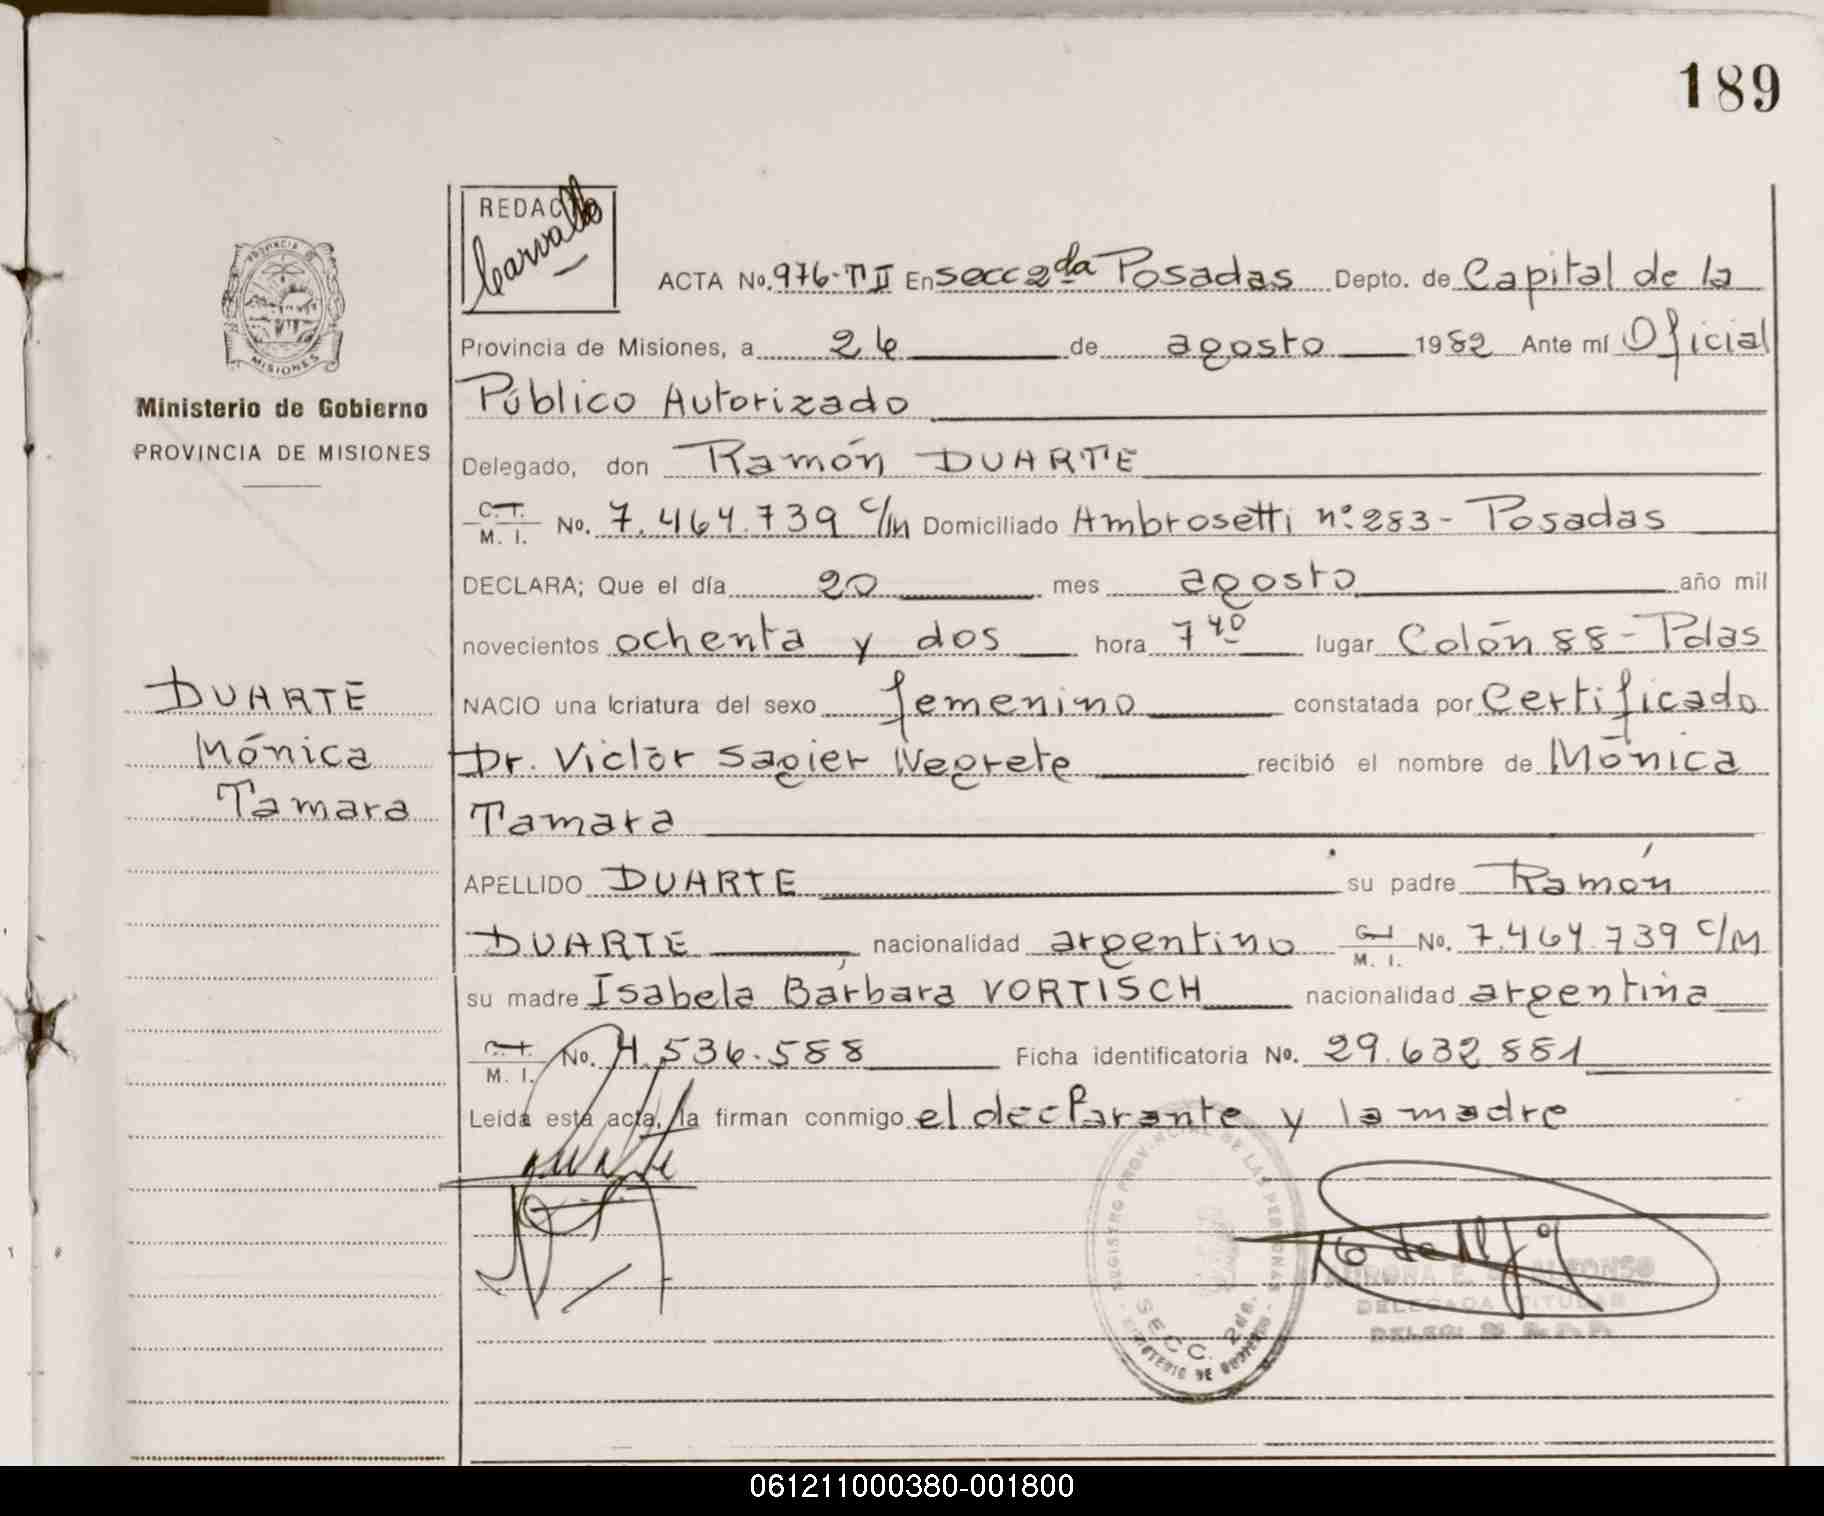 189
REDACTO
Carvallo
ACTA No. 976-T II En secc 2da Posadas Depto. de Capital de la
Provincia de Misiones, a 26 de agosto 1982 Ante mí Oficial
Público Autorizado
Ministerio de Gobierno
PROVINCIA DE MISIONES
Delegado, don Ramón DUARTE
C. I. M. I. No. 7.464.739 C/M Domiciliado Ambrosetti nº 283 - Posadas
DECLARA; Que el día 20 mes agosto año mil
novecientos ochenta y dos hora 7 40 lugar Colón 88 - Pdas
DUARTE
Mónica
Tamara
NACIO una criatura del sexo femenino constatada por Certificado
Dr. Victor Sagier Negrete recibió el nombre de Mónica
Tamara
APELLIDO DUARTE su padre Ramón
DUARTE nacionalidad argentino C. I. M. I. No. 7.464.739 C/M
su madre Isabela Bárbara VORTISCH nacionalidad argentina
C. I. M. I. No. 4.536.588 Ficha identificatoria No. 29.632 881
Leída esta acta, la firman conmigo el declarante y la madre
REGISTRO PROVINCIAL DE LAS PERSONAS
SECC. 2da.
MINISTERIO DE GOBIERNO
DELEGADA TITULAR
061211000380-001800